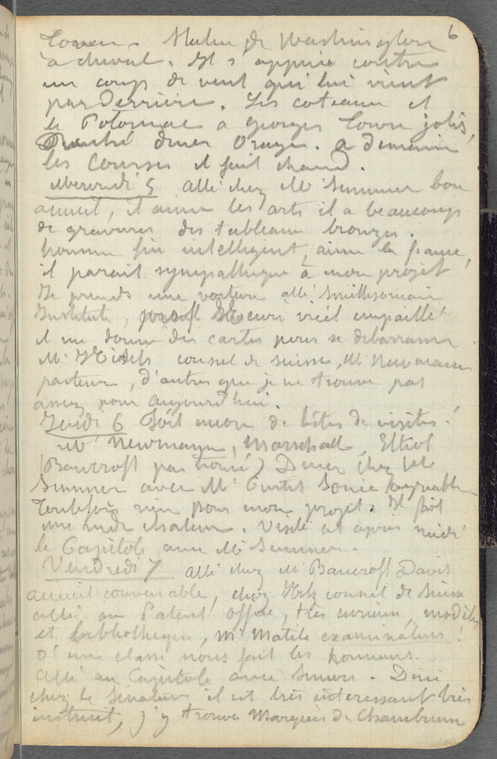 6
Town. Statue de Washington
à cheval. Il s'appuie contre
un coup de vent qui lui vient
par derrière. Les coteaux et
le Potomac à Georges Town jolis,
Rentré diner Orages. à demain
les courses il fait chaud.
Mercredi 5 allé chez Mr Sumner bon
acueil, il aime les arts il a beaucoup
de gravures des tableaux bronzes.
homme fin intelligent, aime la france,
il parait sympathique à mon projet
Je prends une voiture allé Smithsonian
Institut, prof. vieil empaillé
il me donne des cartes pour se débarrasser
Mr consul de Suisse, Mr Newmann
pasteur, d'autres que je ne trouve pas
assez pour aujourd'hui.
Jeudi 6 Soit encore de bêtes de visites!
Mr Newmann, Marschall, Elliot
(Bancroft pas trouvé) Diner chez Mr
Sumner avec Mr Curtis Soirée agréable
Toutefois rien pour mon projet. Il fait
une rude chaleur. Visité cet après midi
le Capitole avec Mr Sumner.
Vendredi 7 allé chez M Bancroft Davis
acueil convenable, chez Hitz consul de Suisse
allés au Patent Office, très curieux, modèles
et bibliothèque, Mr Matile examinateur
d'une classe nous fait les honneurs.
Allé au Capitole avec Simon. Diné
chez le Sénateur il est très intéressant très
instruit, j'y trouve Marquis de Chambrun